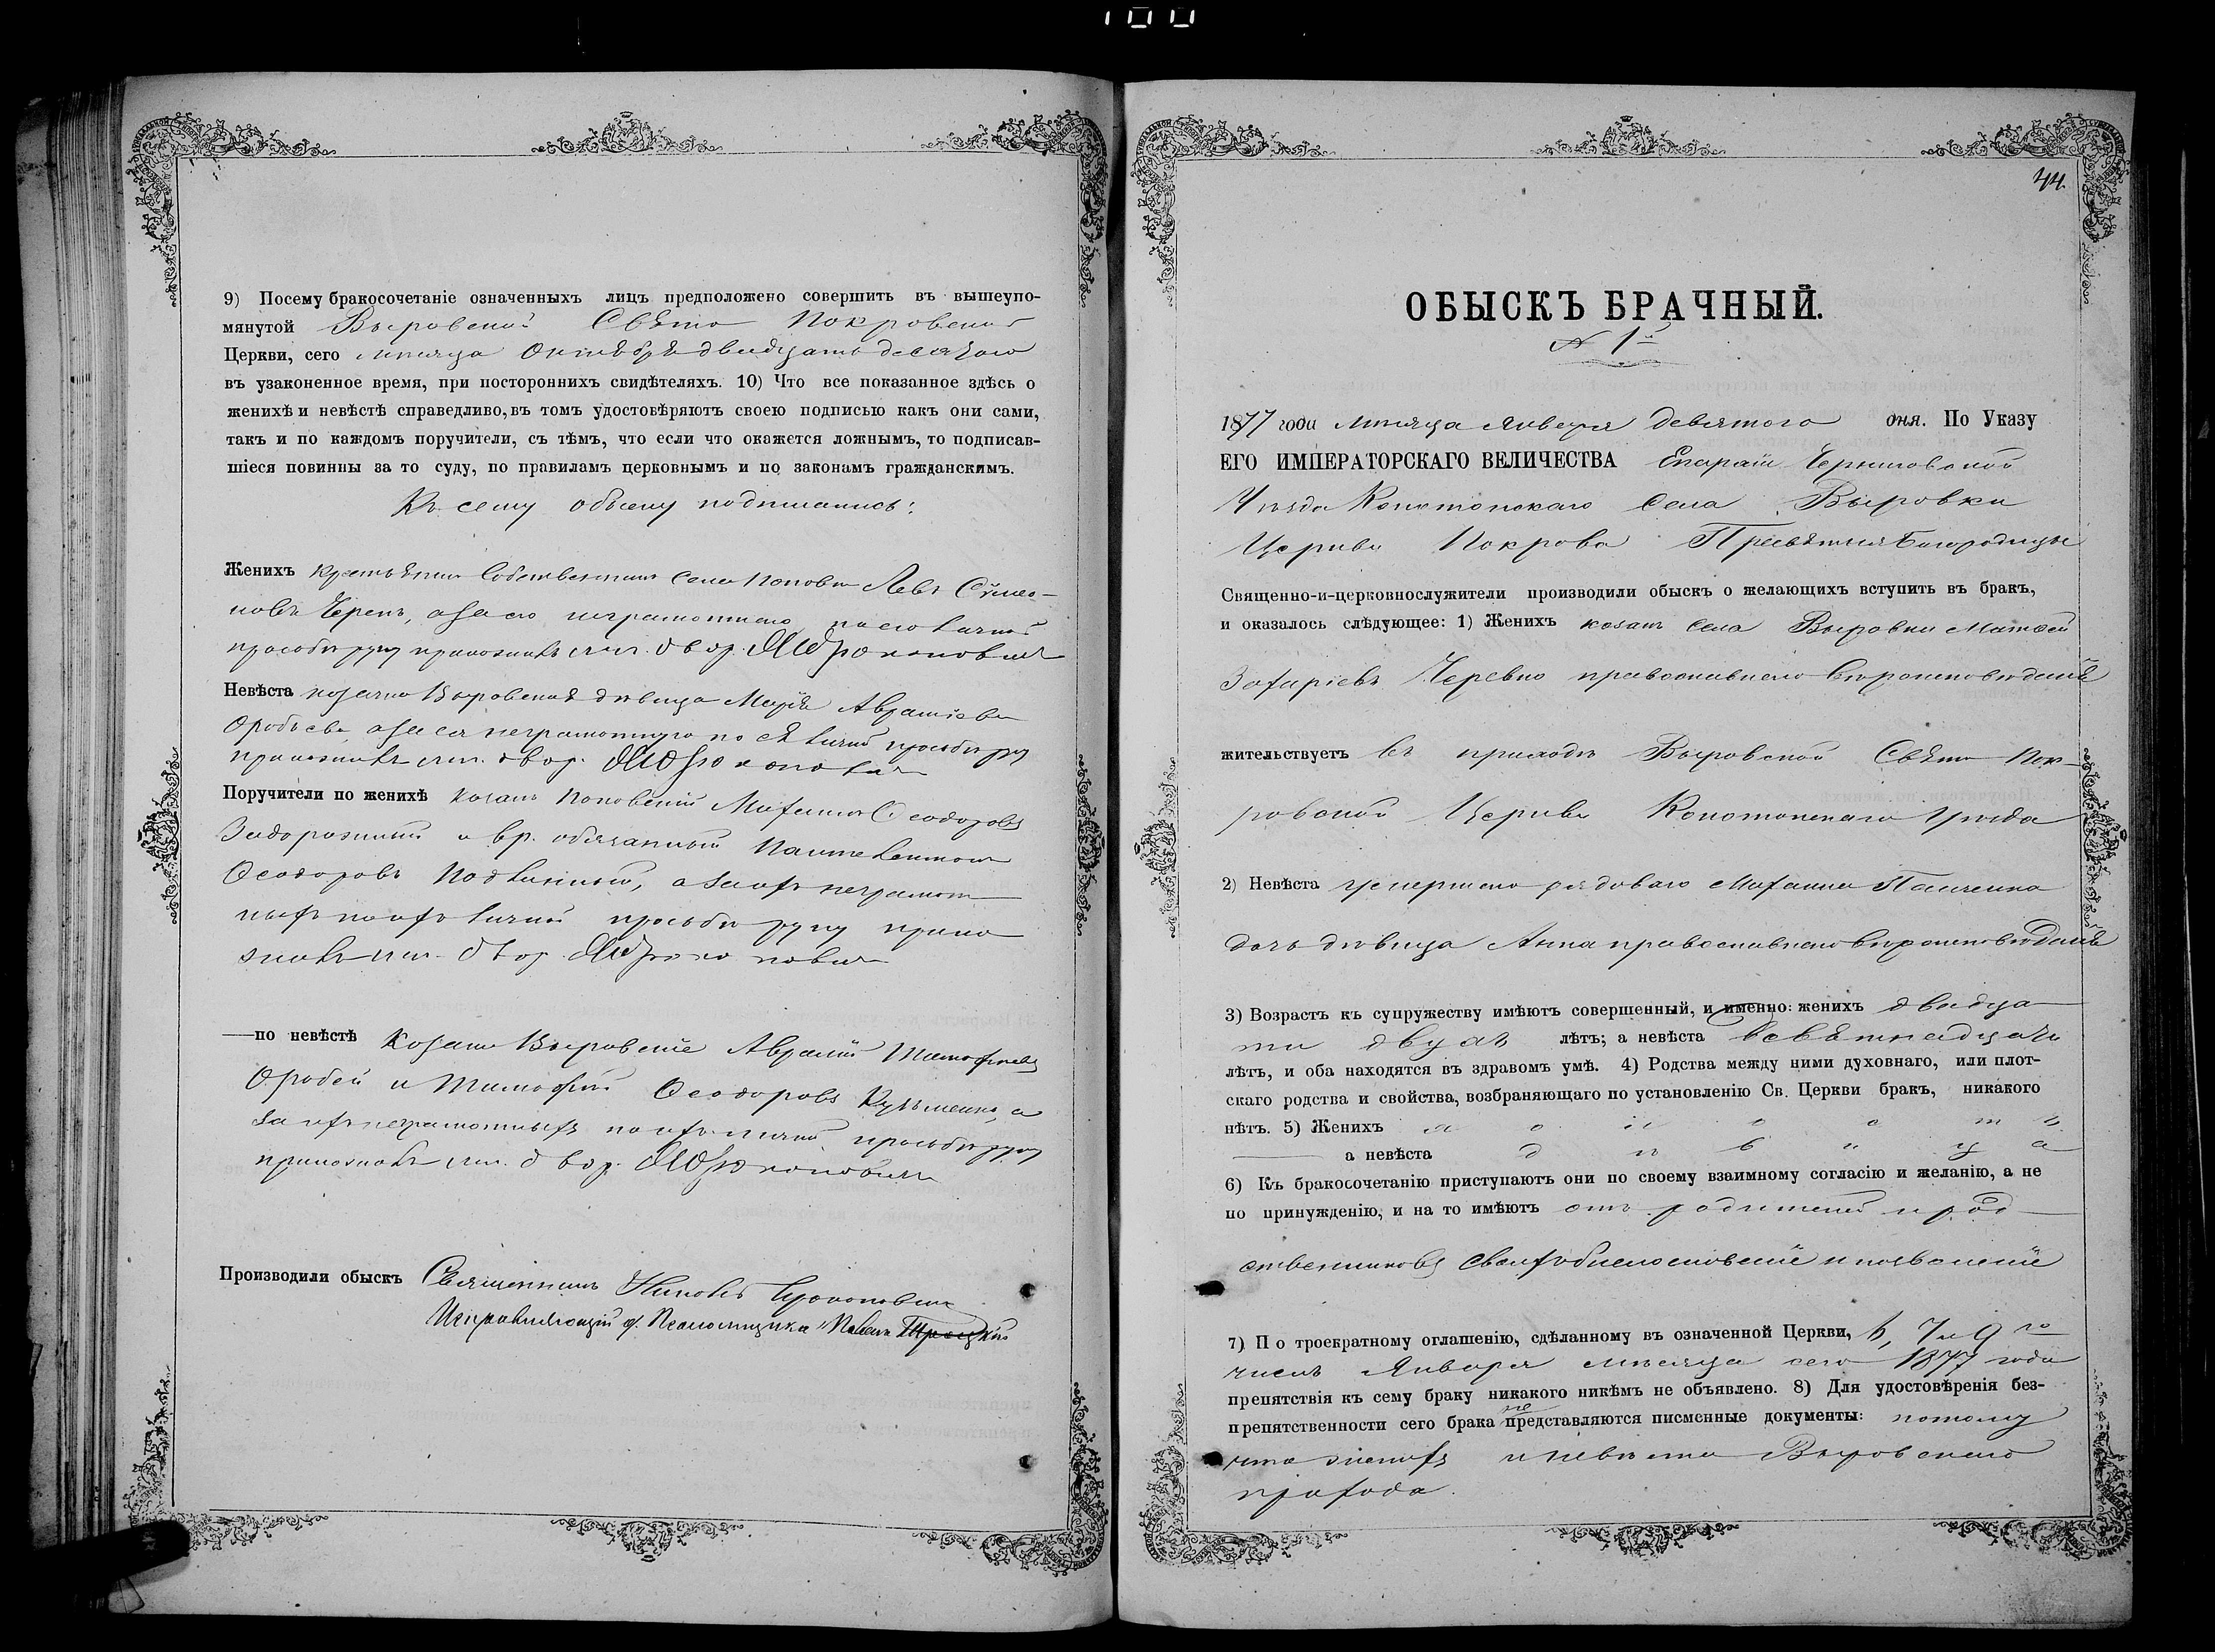 100
9) Посему бракосочетаніе означенныхъ лицъ предположено совершить въ вышеупо-
мянутой Выровской Свято Покровской
Церкви, сего мѣсяца Октября двадцать девятого
въ узаконенное время, при постороннихъ свидѣтеляхъ. 10) Что все показанное здѣсь о
женихѣ и невѣстѣ справедливо, въ томъ удостовѣряютъ своею подписью какъ они сами,
такъ и по каждомъ поручители, съ тѣмъ, что если что окажется ложнымъ, то подписав-
шіеся повинны за то суду, по правиламъ церковнымъ и по законамъ гражданскимъ.
Къ сему обыску подписались:
Женихъ крестьянинъ собственникъ села Поповки Левъ Симео-
новъ Черепъ, а за его неграмотного по его личной
прозьбѣ руку приложилъ двор. Прокоповичъ
Невѣста козачка Выровская дѣвица Марія Аврамiева
Оробьева, а за ея неграмотную по ея личной прозьбѣ руку
приложилъ двор. Прокоповичъ
Поручители по женихѣ козакъ Поповскій Михаилъ Ѳеодоровъ
Задорожный и вр. обязанный Пантелеимонъ
Ѳеодоровъ а за ихъ неграмот
ныхъ по ихъ личной прозьбѣ руку прило
жилъ двор. Прокоповичъ
по невѣстѣ Козаки Выровскіе Аврамій Тимофеевъ
Оробей и Тимофей Ѳеодоровъ Кузьменко, а
за ихъ неграмотныхъ по ихъ личной прозьбѣ руку
приложилъ двор. Прокоповичъ
Производили обыскъ Священникъ Прокоповичъ
Исправляющій д. Псаломщика Павелъ Троцкій
44
ОБЫСКЪ БРАЧНЫЙ.
№ 1й
1877 года мѣсяца Января девятого дня. По Указу
ЕГО ИМПЕРАТОРСКАГО ВЕЛИЧЕСТВА Епархіи Черниговской
Уѣзда Конотопскаго Села Выровки
Церкви Покрова Пресвятыя Богородицы
Священно-и-церковнослужители производили обыскъ о желающихъ вступить въ бракъ,
и оказалось слѣдующее: 1) Женихъ козакъ села Выровки Матѳей
Захаріевъ Черевко православнаго вѣроисповѣданія
жительствуетъ въ приходѣ Выровской Свято Пок-
ровской Церкви Конотопскаго Уѣзда
2) Невѣста умершого рядоваго Михаила Панченка
дочь дѣвица Анна православнаго вѣроисповѣданія
3) Возрастъ къ супружеству имѣютъ совершенный, и именно: женихъ двадца
ти двухъ лѣтъ; а невѣста девятнадцати
лѣтъ, и оба находятся въ здравомъ умѣ. 4) Родства между ними духовнаго, или плот-
скаго родства и свойства, возбраняющаго по установленію Св. Церкви бракъ, никакого
нѣтъ. 5) Женихъ холостъ
а невѣста дѣвица
6) Къ бракосочетанію приступаютъ они по своему взаимному согласію и желанію, а не
по принужденію, и на то имѣютъ отъ родителей и род
ственниковъ своихъ благословеніе и позволеніе
7) По троекратному оглашенію, сдѣланному въ означенной Церкви, 6, 7 и 9го
числъ Января мѣсяца сего 1877 года
препятствія къ сему браку никакого никѣмъ не объявлено. 8) Для удостовѣренія без-
препятственности сего брака не представляются писменные документы: потому
что женихъ и невѣста Выровского
прихода.